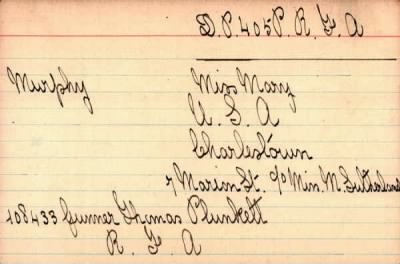 D.P. 405 P. R. F. A
Murphy Miss Mary
U. S. A
Charlestown
7 Marion St. c/o Miss M. Sutherland
108433 Gunner Thomas Plunkett
R. F. A